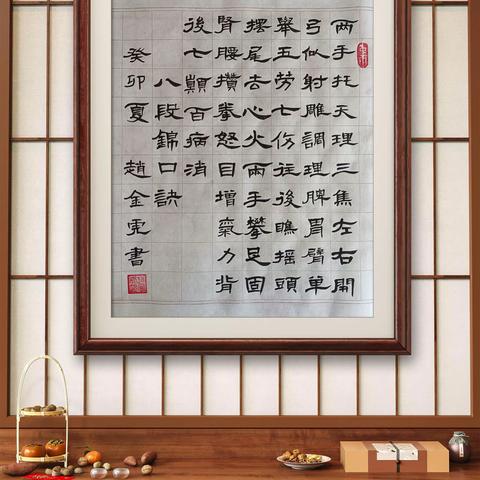 兩手托天理三焦左右開
弓似射雕調理脾胃臂單
舉五劳七伤往後瞧摇頭
摆尾去心火兩手攀足固
腎腰攢拳怒目增氣力背
後七顛百病消
八段錦口訣
癸卯夏 趙金虎書